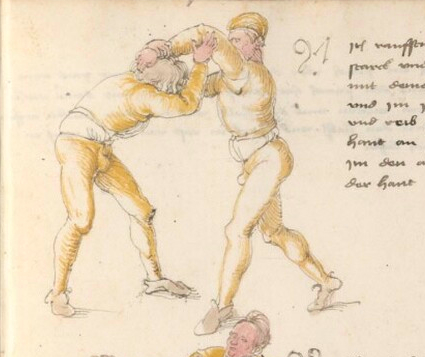 Jtẽ rauffst
starck vnd
mit deine
vnd im j
vnd reib
hant an
jm den a
der hant